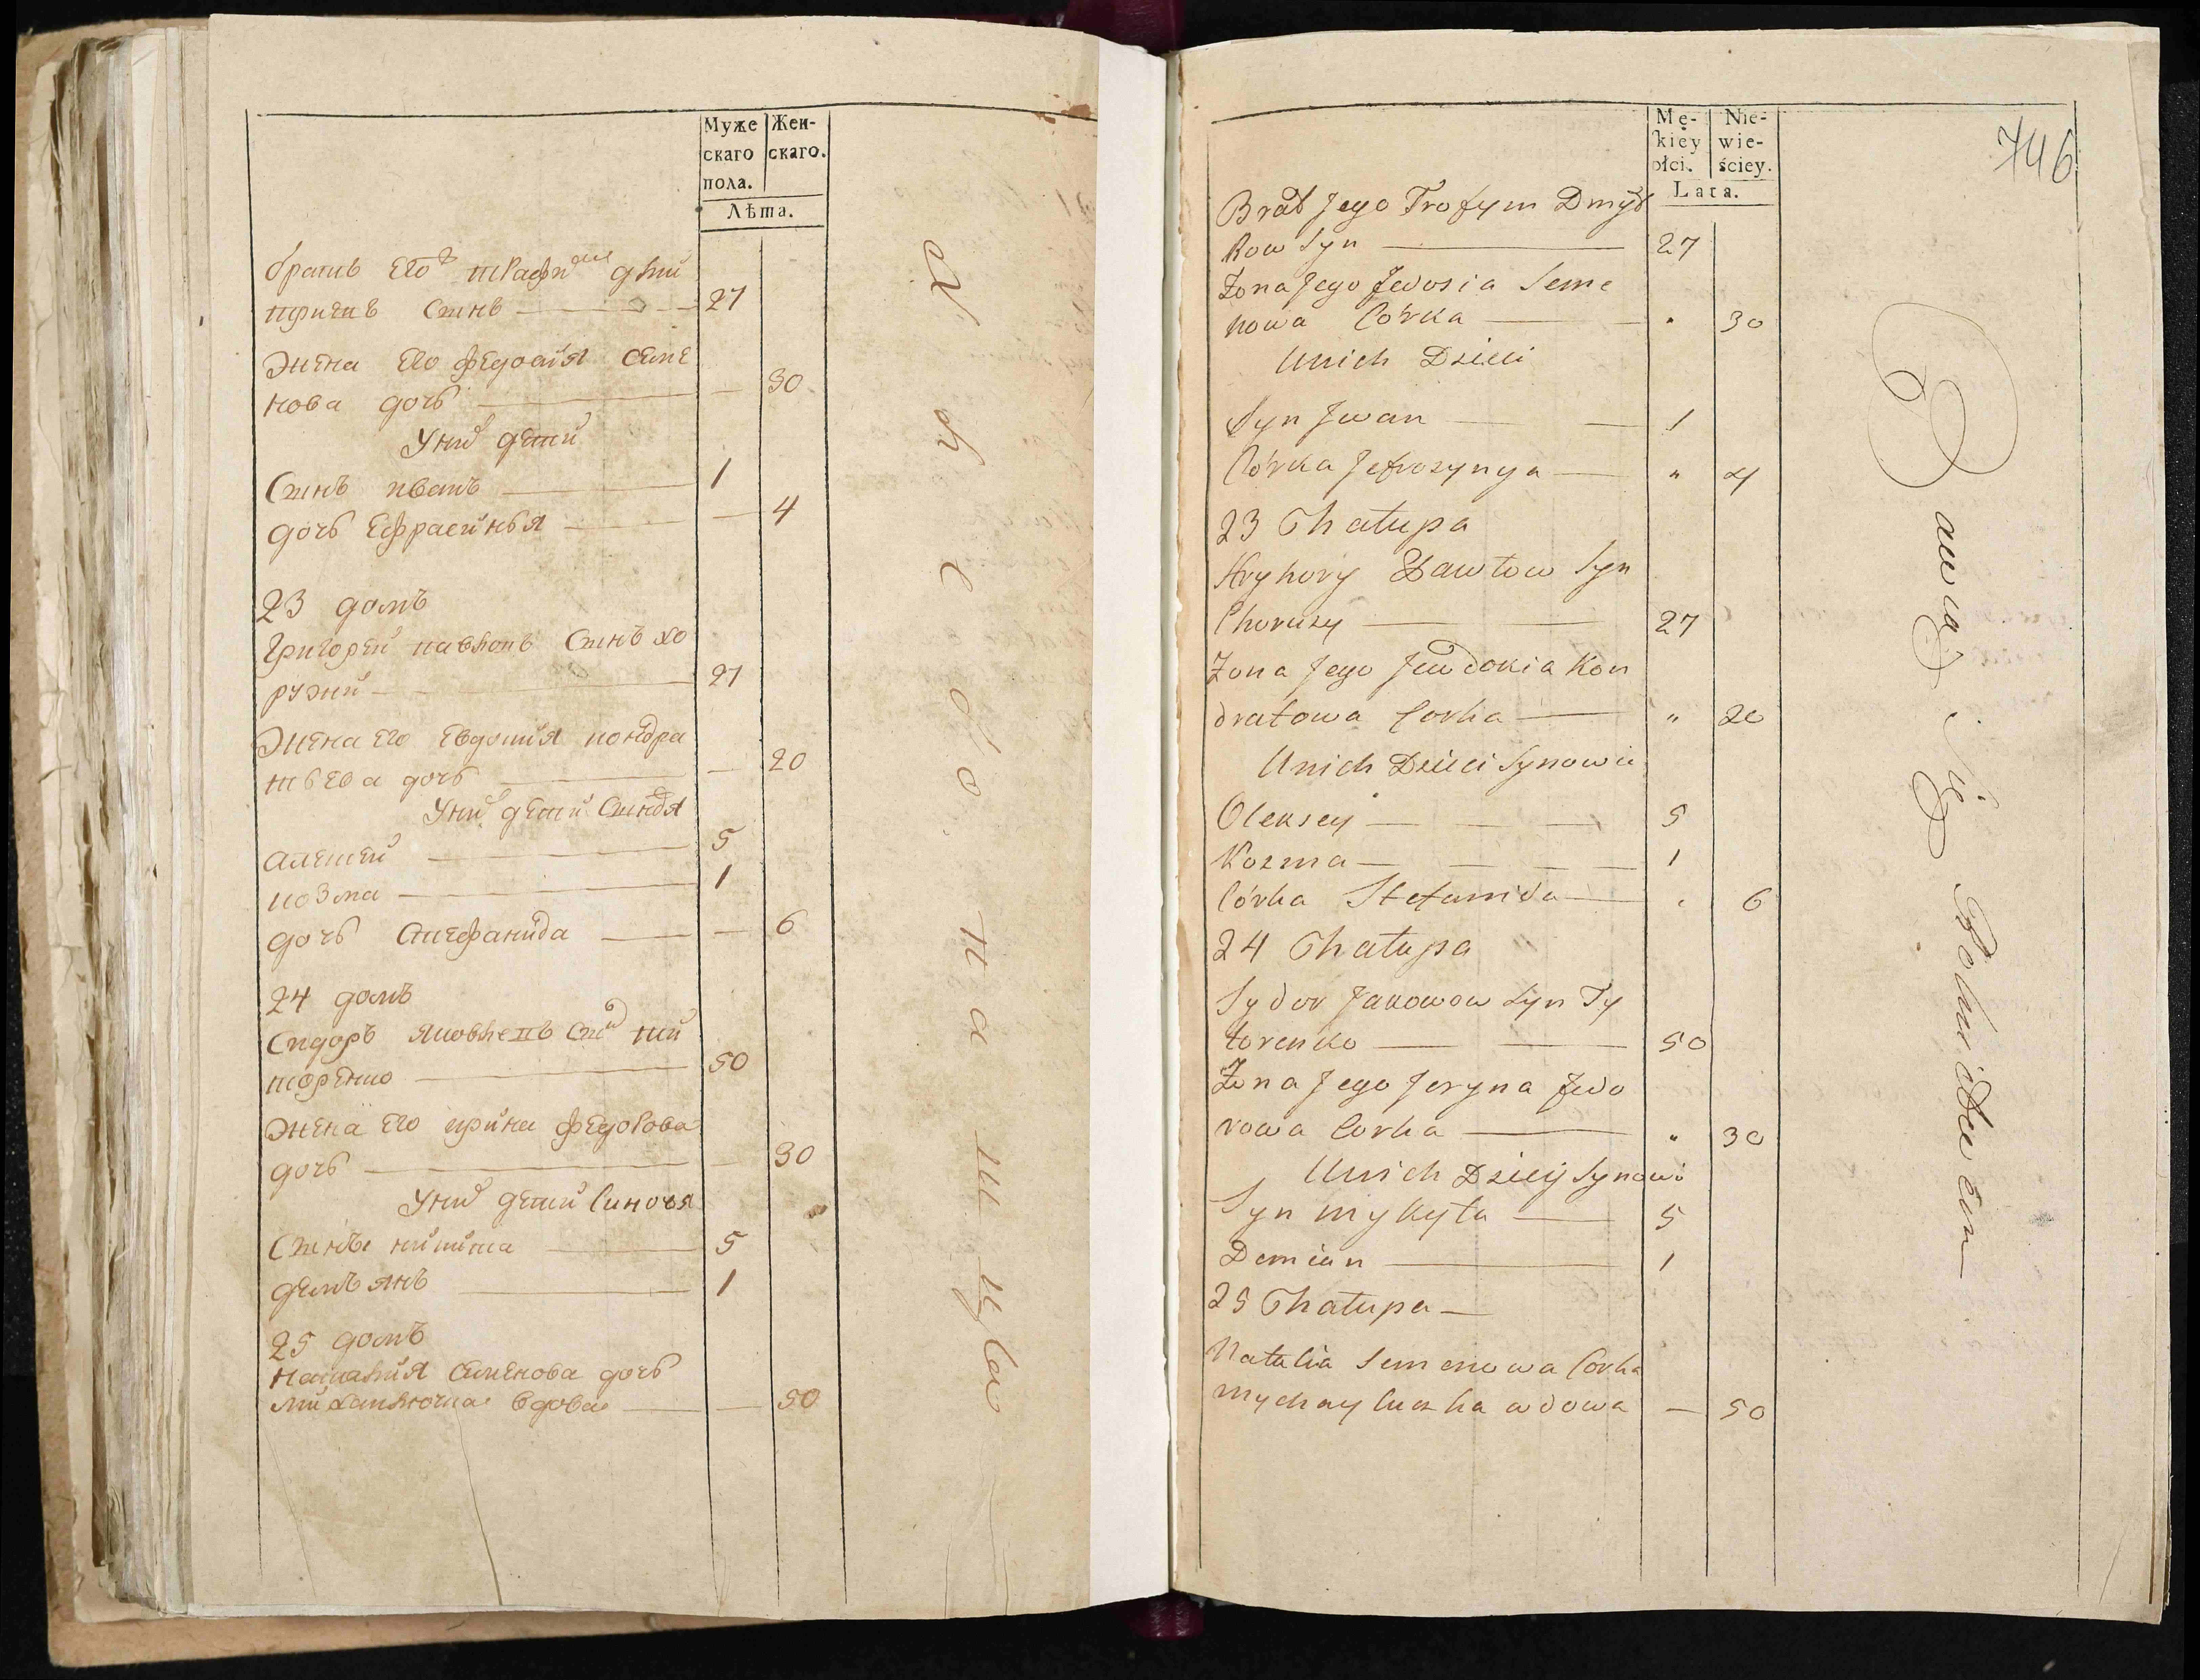 Муже
скаго
пола.
Жен-
скаго.
Лѣта.
братъ Его трафим дми
триевъ Синъ 27
Жена Его федосия семе
нова дочь 30
У них дети
Синъ иванъ 1
дочь Ефрасинья 4
23 домъ
Григорей павловъ Синъ хо
ружи 27
Жена Его Евдокия кондра
тьева дочь 20
У них дети Синовя
алексей 5
козма 1
дочь Стефанида 6
24 домъ
Сидоръ яковлевъ Син ти
торенко 50
Жена Его ирина федорова
дочь 30
У них дети Синовя
Синъ никита 5
демьянъ 1
25 домъ
наталия семенова дочь
михайлючка вдова 50
Mę-
kiey
płci.
Nie-
wie-
ściey.
Lata.
746
Brat Jego Trofym Dmyt
Row Syn 27
Żona Jego Fedosia Seme
nowa Córka 30
Unich Dzieci
Syn Jwan 1
Córka Jefrozynya " 4
23 Chałupa
Hryhory Pawłow Syn
Choruzy 27
Żona Jego Jewdokia Kon
dratowa Corka " 20
Unich Dzieci Synowie
Olexsey 5
Kozma 1
Córka Stefanida 6
24 Chałupa
Sydor Jakowow Syn Ty
torenko 50
Żona Jego Jeryna Fedo
rowa Corka " 30
Unich Dzieci Synowi
Syn mykyta 5
Demian 1
25 Chałupa
Natalia Semenowa Corka
mychayluczka wdowa 50